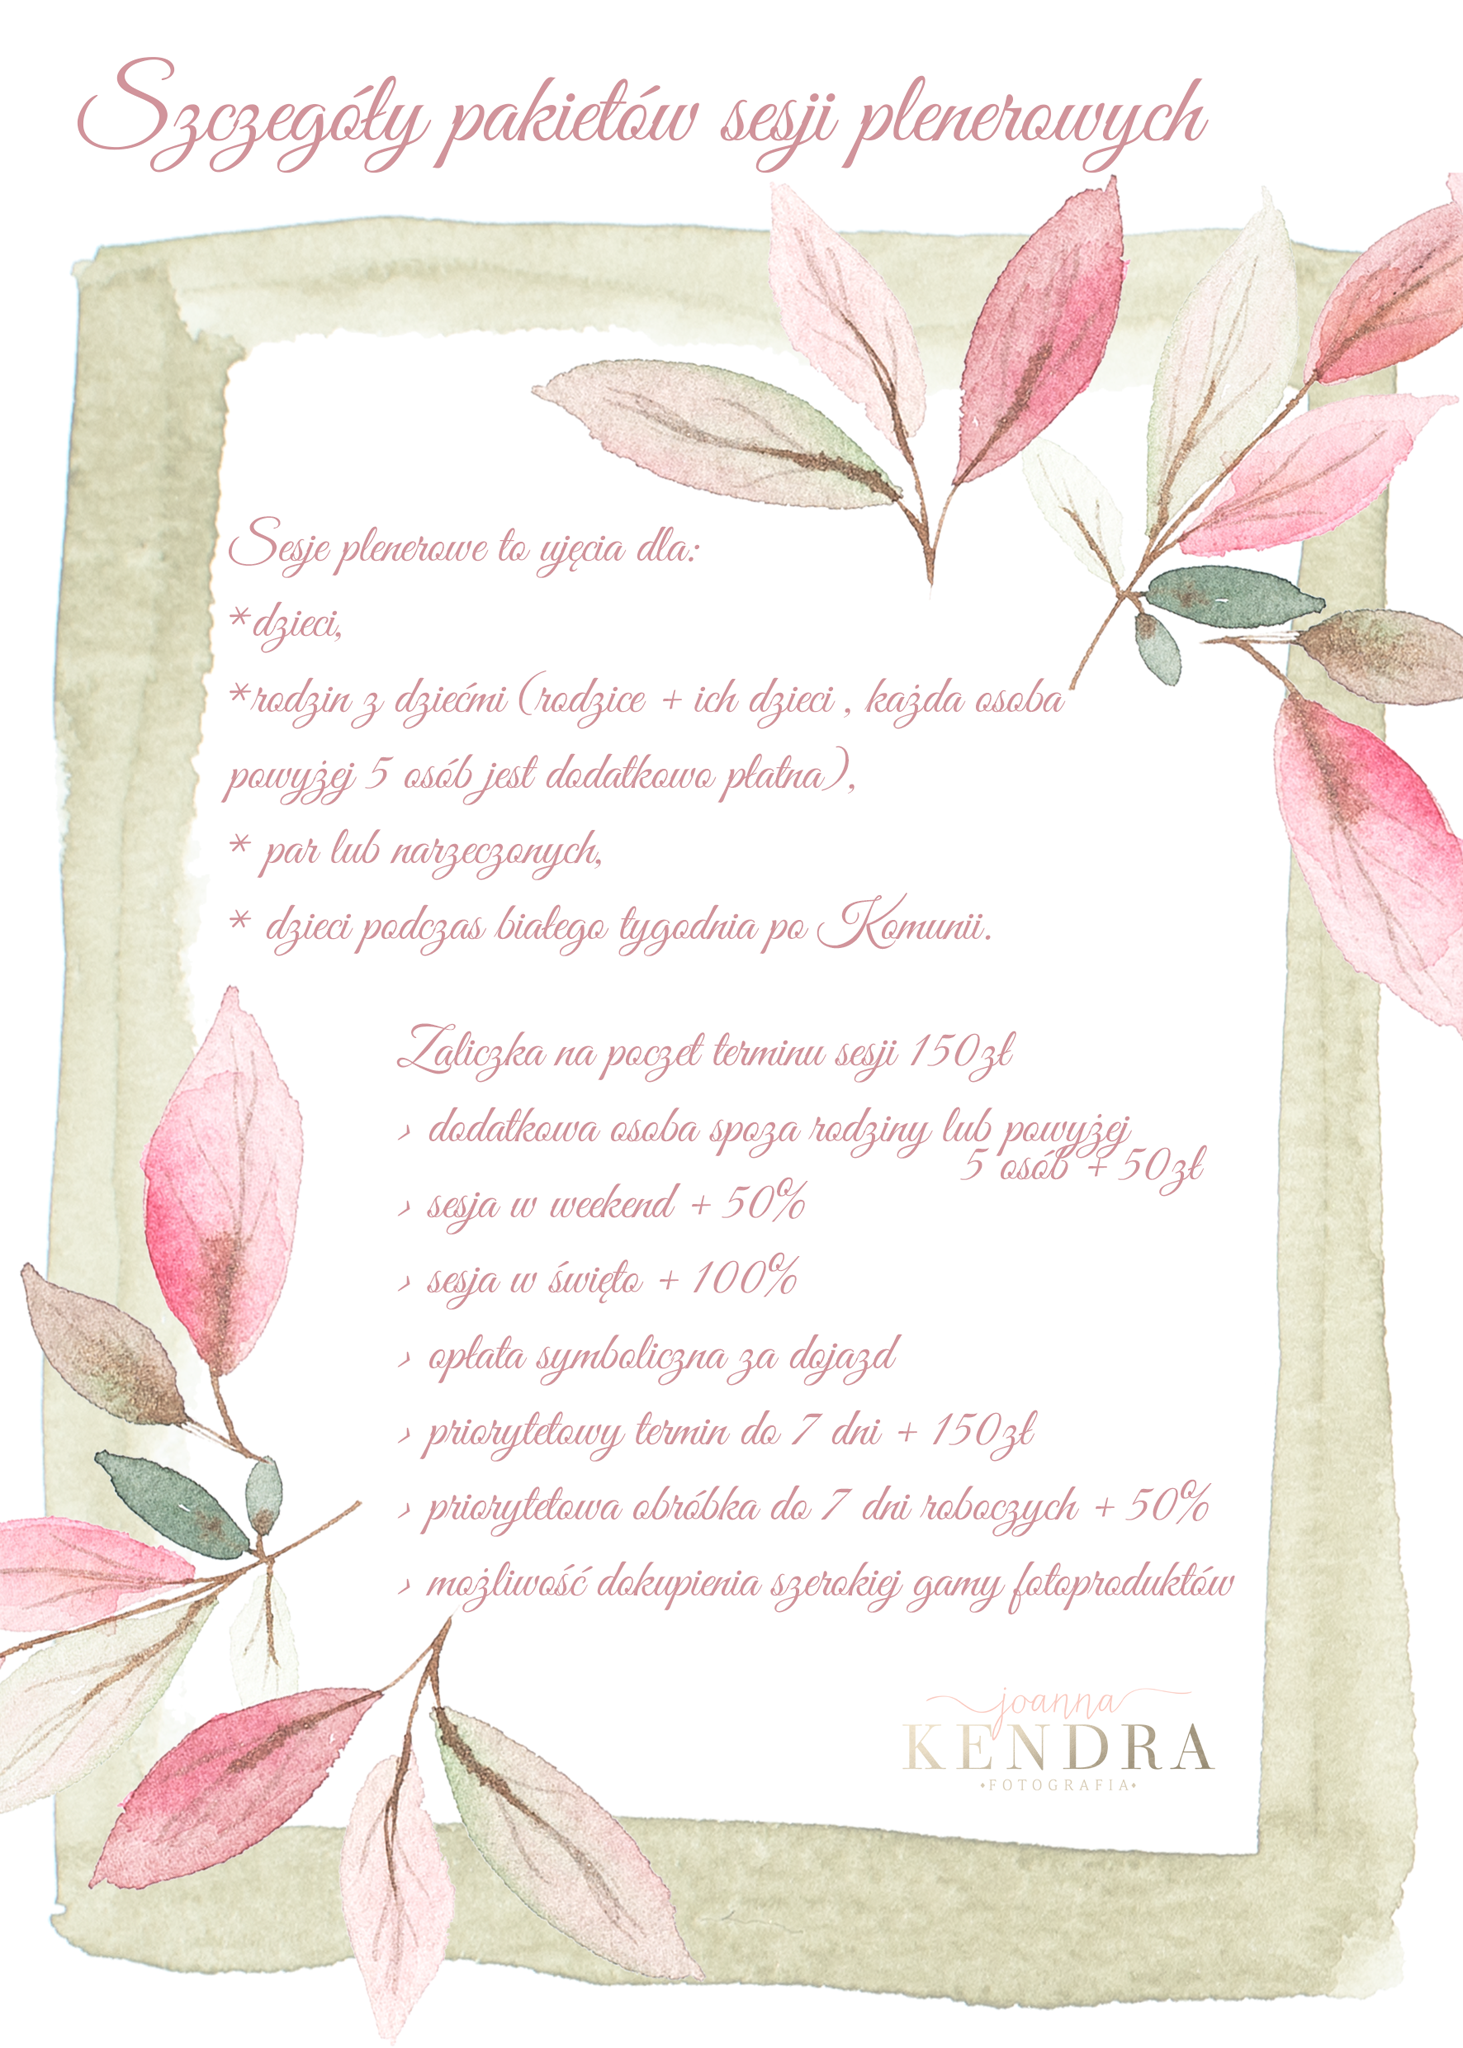 Szczegóły pakietów sesji plenerowych
Sesje plenerowe to ujęcia dla:
*dzieci,
*rodzin z dziećmi (rodzice + ich dzieci , każda osoba
powyżej 5 osób jest dodatkowo płatna),
* par lub narzeczonych,
* dzieci podczas białego tygodnia po Komunii.
Zaliczka na poczet terminu sesji 150zł
› dodatkowa osoba spoza rodziny lub powyżej
5 osób + 50zł
› sesja w weekend + 50%
› sesja w święto + 100%
› opłata symboliczna za dojazd
› priorytetowy termin do 7 dni + 150zł
› priorytetowa obróbka do 7 dni roboczych + 50%
› możliwość dokupienia szerokiej gamy fotoproduktów
joanna
KENDRA
•FOTOGRAFIA•